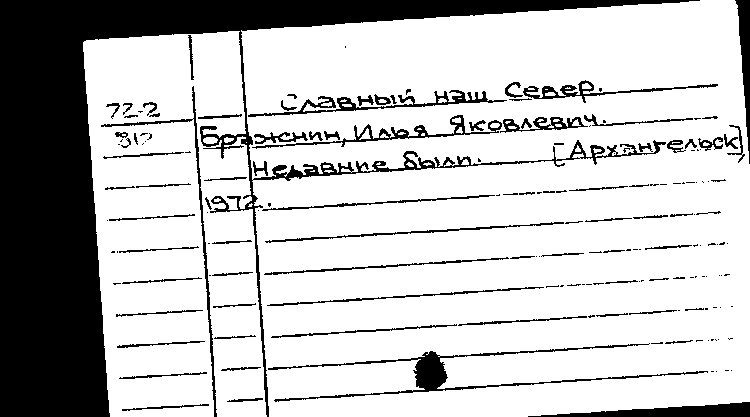 72-2 Славный наш Север.
312 Бражнин, Илья Яковлевич.
Недавние были. [Архангельск],
1972.